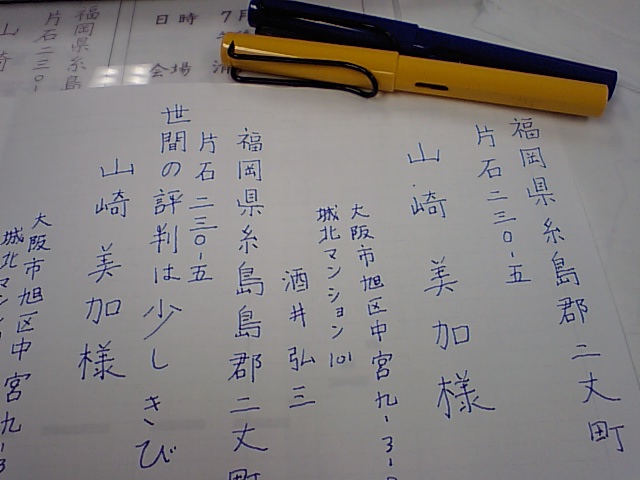 福岡県糸島郡二丈町
片石二三〇-五
山崎 美加様
大阪市旭区中宮九-3-
城北マンション101
酒井弘三
福岡県糸島島郡二丈町
片石二三〇-五
世間の評判は少しきび
山崎 美加様
大阪市旭区中宮九-3
城北マン
日時 7月
会場 浦
福岡県糸島
片石二三〇-
山崎